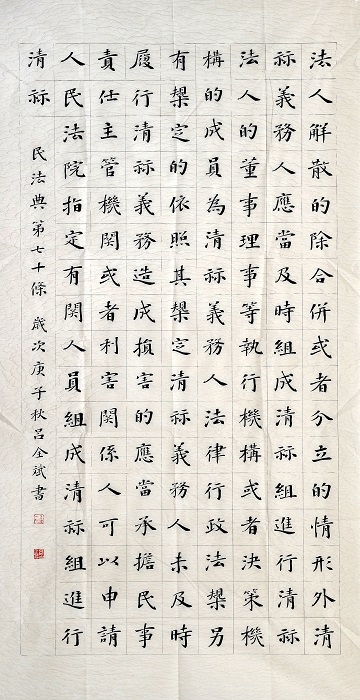 法人解散的除合併或者分立的情形外清
祘義務人應當及時組成清祘組進行清祘
法人的董事理事等執行機構或者決策機
構的成員為清祘義務人法律行政法槼另
有槼定的依照其槼定清祘義務人未及時
履行清祘義務造成損害的應當承擔民事
責任主管機関或者利害関係人可以申請
人民法院指定有関人員組成清祘組進行
清祘
民法典第七十條 歲次庚子秋吕全斌書